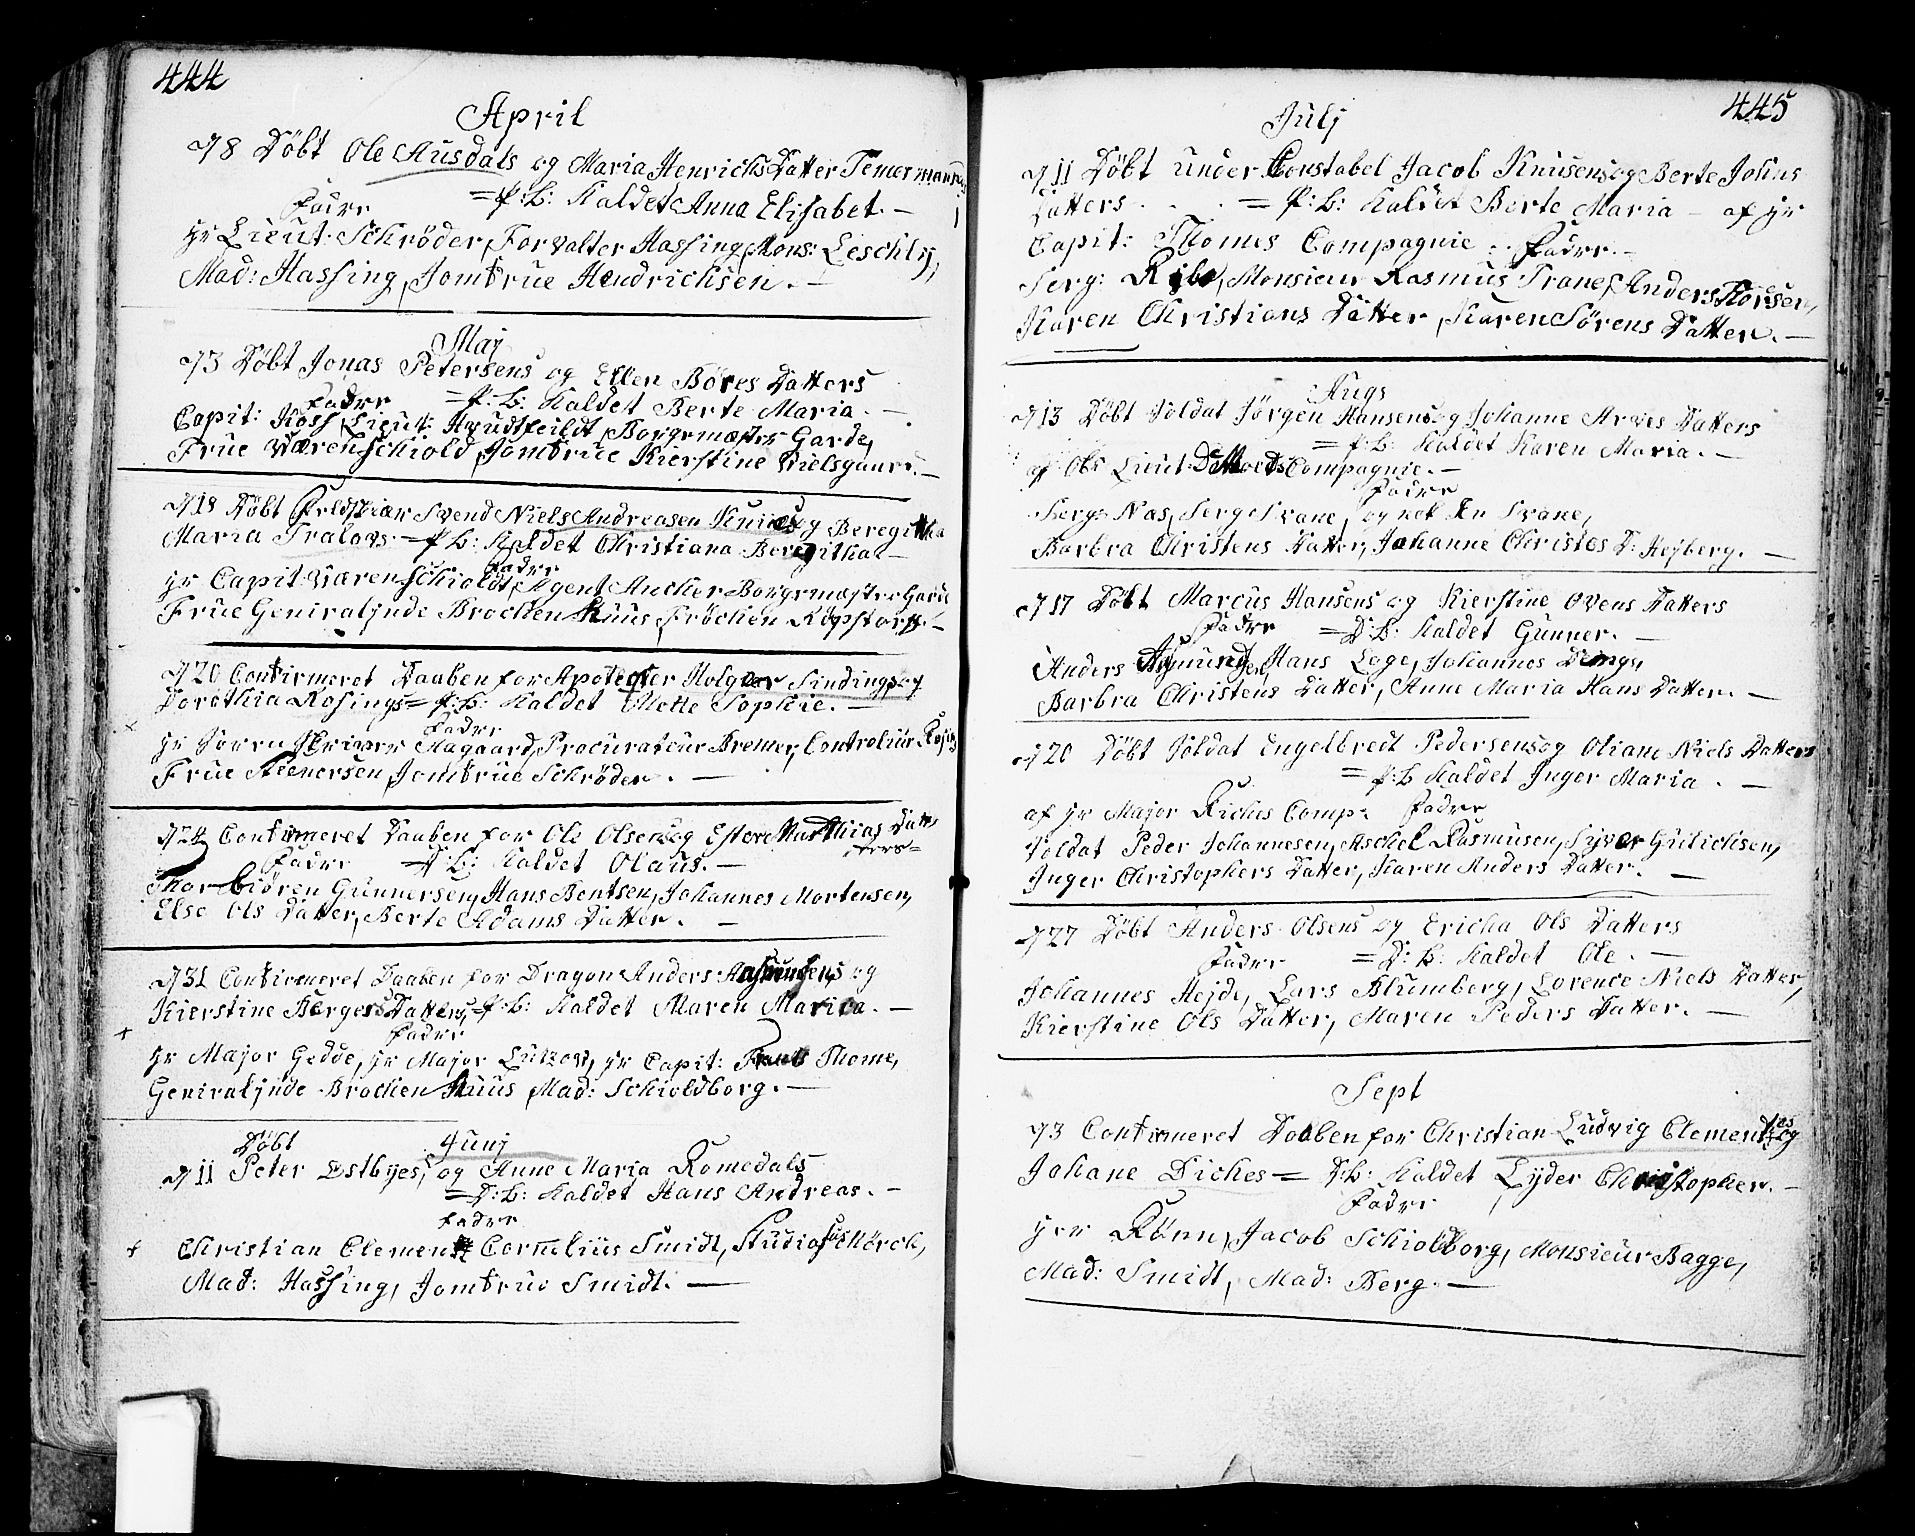 444
April
d 8 Døbt Ole Ausdals og Maria Henrichs Datter Temermanns
= P: B: Kaldet Anna Elisabet. —
Fadre
Hr Lieut: Schrøder, Forvalter Hassing, Mons: Leschly,
Mad: Hassing, Jomfrue Hendrichsen. —
Maj
d 3 Døbt Jonas Petersens og Ellen Børes Datters
Fadre = P: B: Kaldet Berte Maria. —
Capit: Koss, Lieut: Hvudtfeildt, Borgemæster Garde,
Frue Værenschiold, Jomfrue Kierstine Nielsgaard. —
d 18 Døbt Feldskiær Svend Niels Andreasen Kniss og Beregitha
Maria Tralows — P B: Kaldet Christiana Beregitha —
Fadre
Hr Capit: Værenschioldt, Agent Ancher, Borgemæster Garde
Frue Geniralinde Brochenhuus, Frøchen Røpstorff. —
d 20 Confirmeret Daaben for Apoteqter Holger Sindings og
Dorothia Rosings = P: B: Kaldet Mette Sophie. —
Fadre
Hr Soren Skriver Aagaard, Procurateur Bremer, Controleur Rosing
Frue Steenersen, Jomfrue Schrøder. —
d 24 Confirmeret Daaben for Ole Olsens og Estere Matthias Datt
ters =
Fadre = D: B: Kaldet Olaus. —
Thorbiøren Gunnersen, Hans Bentsen, Johannes Mortensen,
Else Ols Datter, Berte Adams Datter. —
d 31 Confirmeret Daaben for Dragon Anders Asmundsens og
Kierstine Børgers Datters = P: B: Kaldet Maren Marica. —
Fadre
Hr Major Gedde, Hr Major Lutzow, Hr Capit: Frants Thome,
Geniralinde Brochenhuus, Mad: Schioldborg. —
Døbt Junj
d 11 Peter Østbyes, og Anne Maria Romedals
= D: B: Kaldet Hans Andreas. —
Fadre
Christian Clementz, Cornelius Smidt, Studiosus Mørch,
Mad: Hassing, Jomfrue Smidt. —
445
Julj
d 11 Døbt under Constabel Jacob Knusens og Berte Johns
Datters . . . = P: B: Kaldet Berte Maria — af Hr
Capit: Thomes Compagnie . . Fadre. —
Serg: Ribe, Monsieur Rasmus Trane, Anders Thorsen,
Karen Christians Datter, Karen Sørens Datter. —
Augs
d 13 Døbt Soldat Jørgen Hansens og Johanne Arves Datters
= P: B: Kaldet Karen Maria. —
af Ob: Lieut: De Moeds Compagnie. —
Fadre
Serg: Nas, Serg Svane, og nok En Svane,
Barbra Christens Datter, Johanne Christes D: Hejberg. —
d 17 Døbt Marcus Hansens og Kierstine Ovens Datters
Fadre = D: B: Kaldet Gunner. —
Anders Asmundsen, Hans Loge, Johannes Dengs,
Barbra Christens Datter, Anne Maria Hans Datter. —
d 20 Døbt Soldat Engelbredt Pedersens og Oliane Niels Datters
= P: B Kaldet Inger Maria. —
af Hr Major Riches Comp: Fadre
Soldat Peder Johannesen, Aschel Rasmusen, Syver Gulichsen,
Inger Christophers Datter, Karen Anders Datter. —
d 27 Døbt Anders Olsens og Ericha Ols Datters
Fadre = D: B: Kaldet Ole. —
Johannes Hejde, Lars Blumberg, Lorence Niels Datter,
Kierstine Ols Datter, Maren Peders Datter. —
Sept
d 3 Confirmeret Daaben for Christian Ludvig Clementzes og
Johane Diches = D: B: Kaldet Lyder Christopher. —
Fadre
Hrr Rønn, Jacob Schioldborg, Monsieur Bagge,
Mad: Smidt, Mad: Berg. —